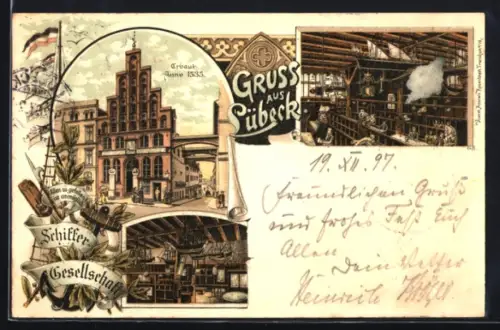 Erbaut
Anno 1535.
GRUSS
AUS
Lübeck
Schiffer
Gesellschaft
19. XII. 97.
Freundlichen Gruß
und frohes Fest Euch
Allen
Dein Vetter
Heinrich